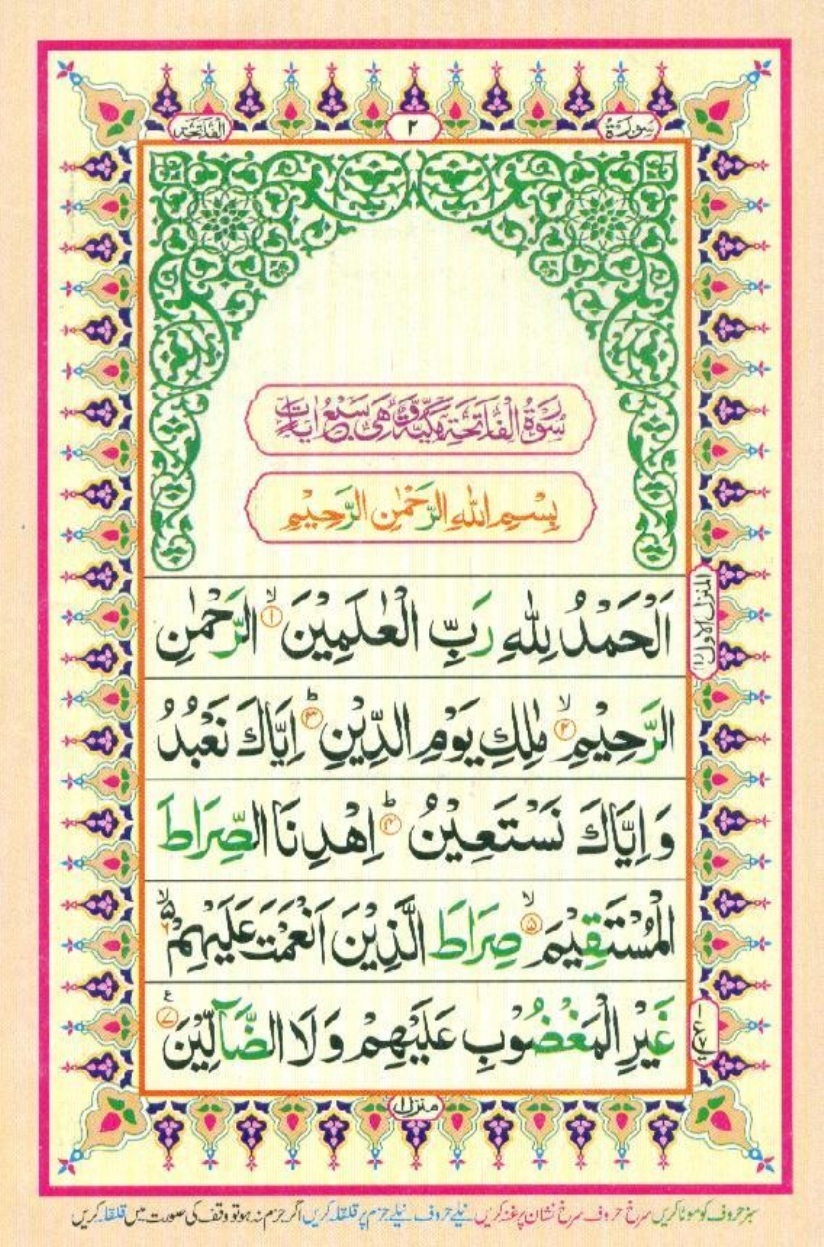 سورة ٢ الفاتحة
سُوْرَةُ الْفَاتِحَةِ مَكِّيَّةٌ وَّهِيَ سَبْعُ اٰيَاتٍ
بِسْمِ اللّٰهِ الرَّحْمٰنِ الرَّحِيْمِ
اَلْحَمْدُ لِلّٰهِ رَبِّ الْعٰلَمِيْنَ ۙ‏﴿۱﴾ الرَّحْمٰنِ
الرَّحِيْمِ ۙ‏﴿۲﴾ مٰلِكِ يَوْمِ الدِّيْنِ ؕ‏﴿۳﴾ اِيَّاكَ نَعْبُدُ
وَ اِيَّاكَ نَسْتَعِيْنُ ؕ‏﴿۴﴾ اِهْدِنَا الصِّرَاطَ
الْمُسْتَقِيْمَ ۙ‏﴿۵﴾ صِرَاطَ الَّذِيْنَ اَنْعَمْتَ عَلَيْهِمْ ۙ۬ۦ ﴿۶﴾
غَيْرِ الْمَغْضُوْبِ عَلَيْهِمْ وَ لَا الضَّآلِّيْنَ ﴿۷﴾
المنزل الاول
منزل ۱
سبز حروف کو موٹا کریں سرخ حروف سرخ نشان پر غنہ کریں نیلے حروف نیلے جزم پر قلقلہ کریں اگر جزم نہ ہو تو وقف کی صورت میں قلقلہ کریں